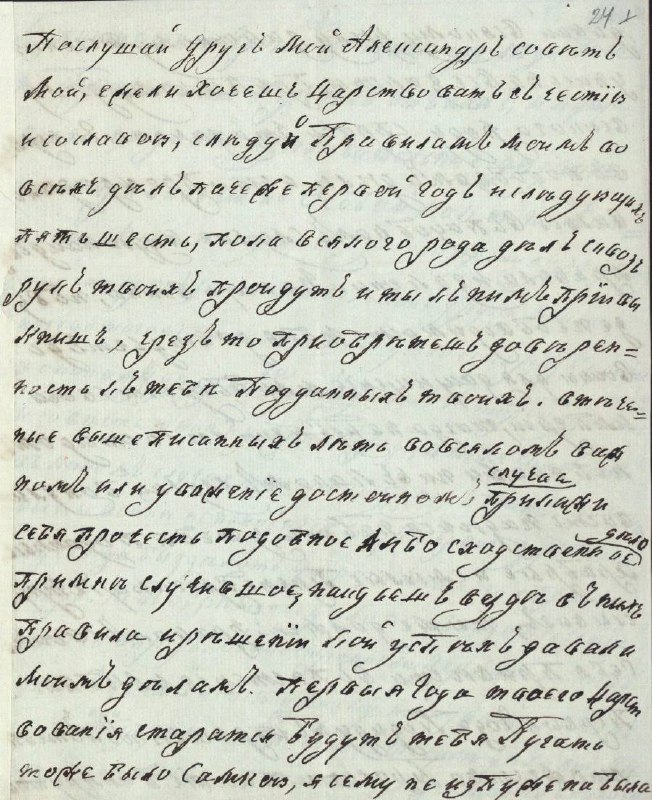 24
Послушай другъ мой Александръ совѣтъ
мой, ежели хочешъ Царствовать съ честію
и со славою, слѣдуй Правиламъ моимъ во
всѣхъ дѣлъ паче же первой годъ и слѣдующихъ
пять шесть, пока всякого рода дѣлъ сквозь
рукъ твоихъ пройдутъ и ты къ нимъ привы
книшъ, чрезъ то приобрѣтешъ доверен=
ность къ тебѣ Подданныхъ твоихъ. въ тече=
ніе вышеписанныхъ лѣтъ во всякомъ важ
номъ или уваженіе достойномъ, случае прикажи
себя прочесть подобное либо сходственное дѣло
примѣ случившое, найдешъ вездѣ въ нихъ
Правила и рѣшеніи кой успѣхъ давали
моимъ дѣламъ. Первыя Года твоего Царст
вованія старатся будутъ тебя Пугать
тоже было самною, я сему не испужена была